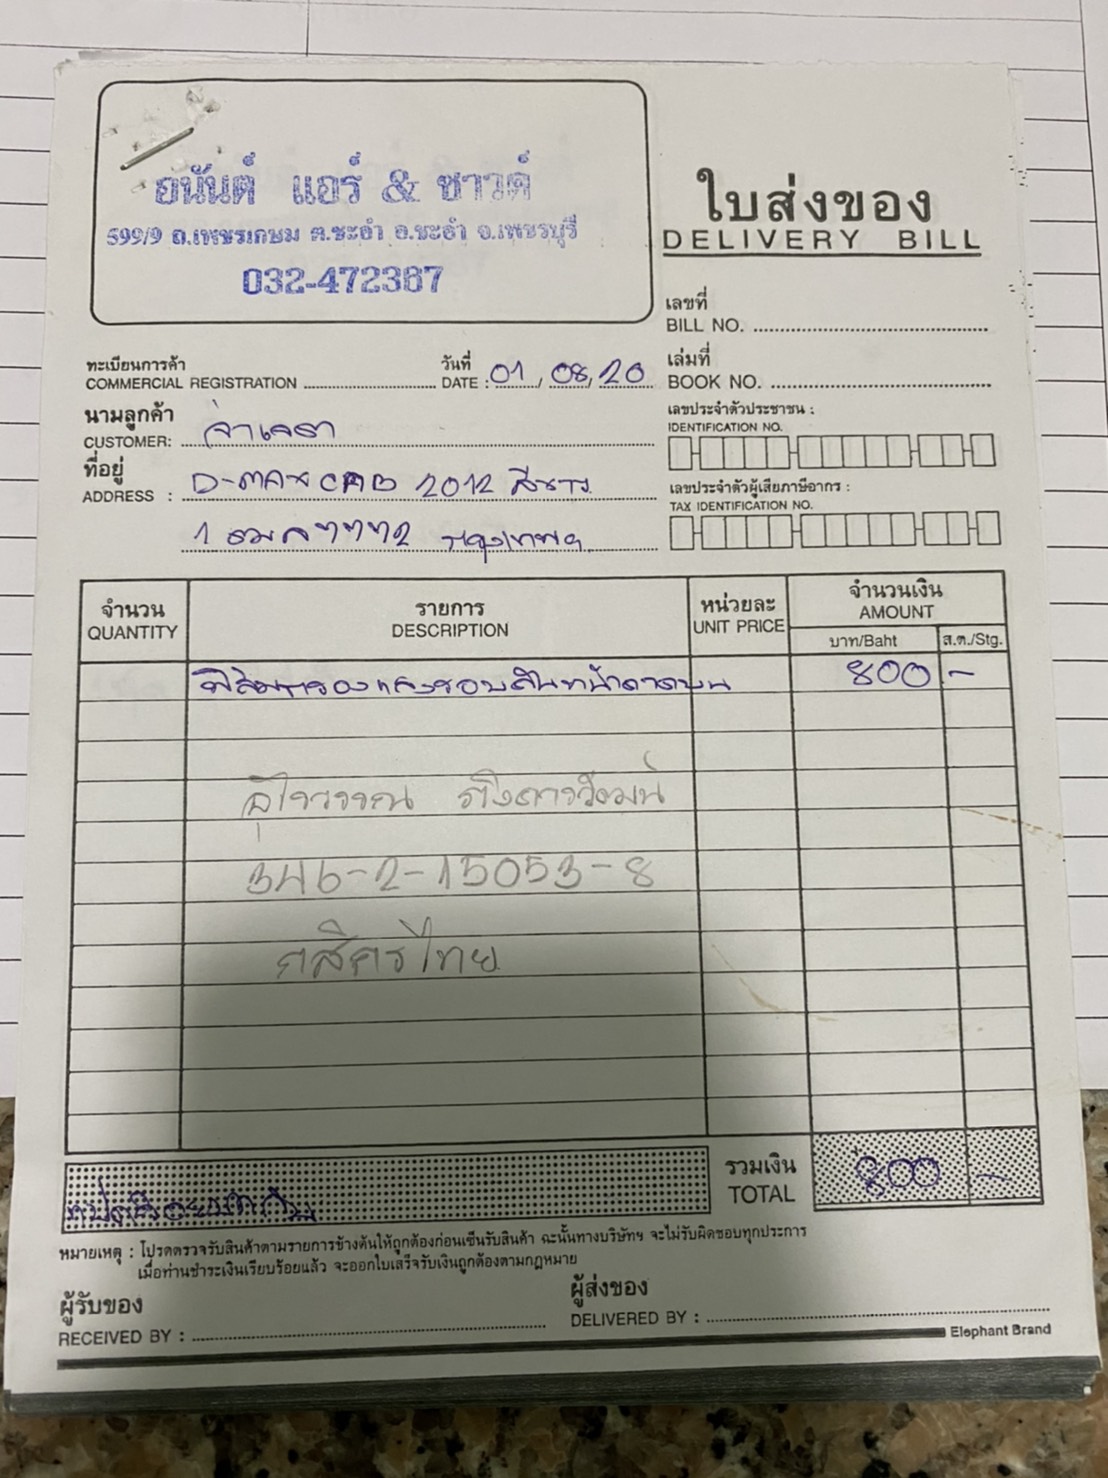 อนันต์ แอร์ & ซาวด์
599/9 ถ.เพชรเกษม ต.ชะอำ อ.ชะอำ จ.เพชรบุรี
032-472367
ใบส่งของ
DELIVERY BILL
เลขที่
BILL NO.
ทะเบียนการค้า
COMMERCIAL REGISTRATION
วันที่
DATE : 01/08/20
เล่มที่
BOOK NO.
นามลูกค้า
CUSTOMER:
เลขประจำตัวประชาชน :
IDENTIFICATION NO.
ที่อยู่
ADDRESS : D-MAX CAB 2012
เลขประจำตัวผู้เสียภาษีอากร :
TAX IDENTIFICATION NO.
กรุงเทพฯ
จำนวน
QUANTITY
รายการ
DESCRIPTION
หน่วยละ
UNIT PRICE
จำนวนเงิน
AMOUNT
บาท/Baht
ส.ต./Stg.
800 -
346-2-15053-8
กสิกรไทย
รวมเงิน
TOTAL
800 -
หมายเหตุ : โปรดตรวจรับสินค้าตามรายการข้างต้นให้ถูกต้องก่อนเซ็นรับสินค้า ฉะนั้นทางบริษัทฯ จะไม่รับผิดชอบทุกประการ
เมื่อท่านชำระเงินเรียบร้อยแล้ว จะออกใบเสร็จรับเงินถูกต้องตามกฎหมาย
ผู้รับของ
RECEIVED BY :
ผู้ส่งของ
DELIVERED BY :
Elephant Brand